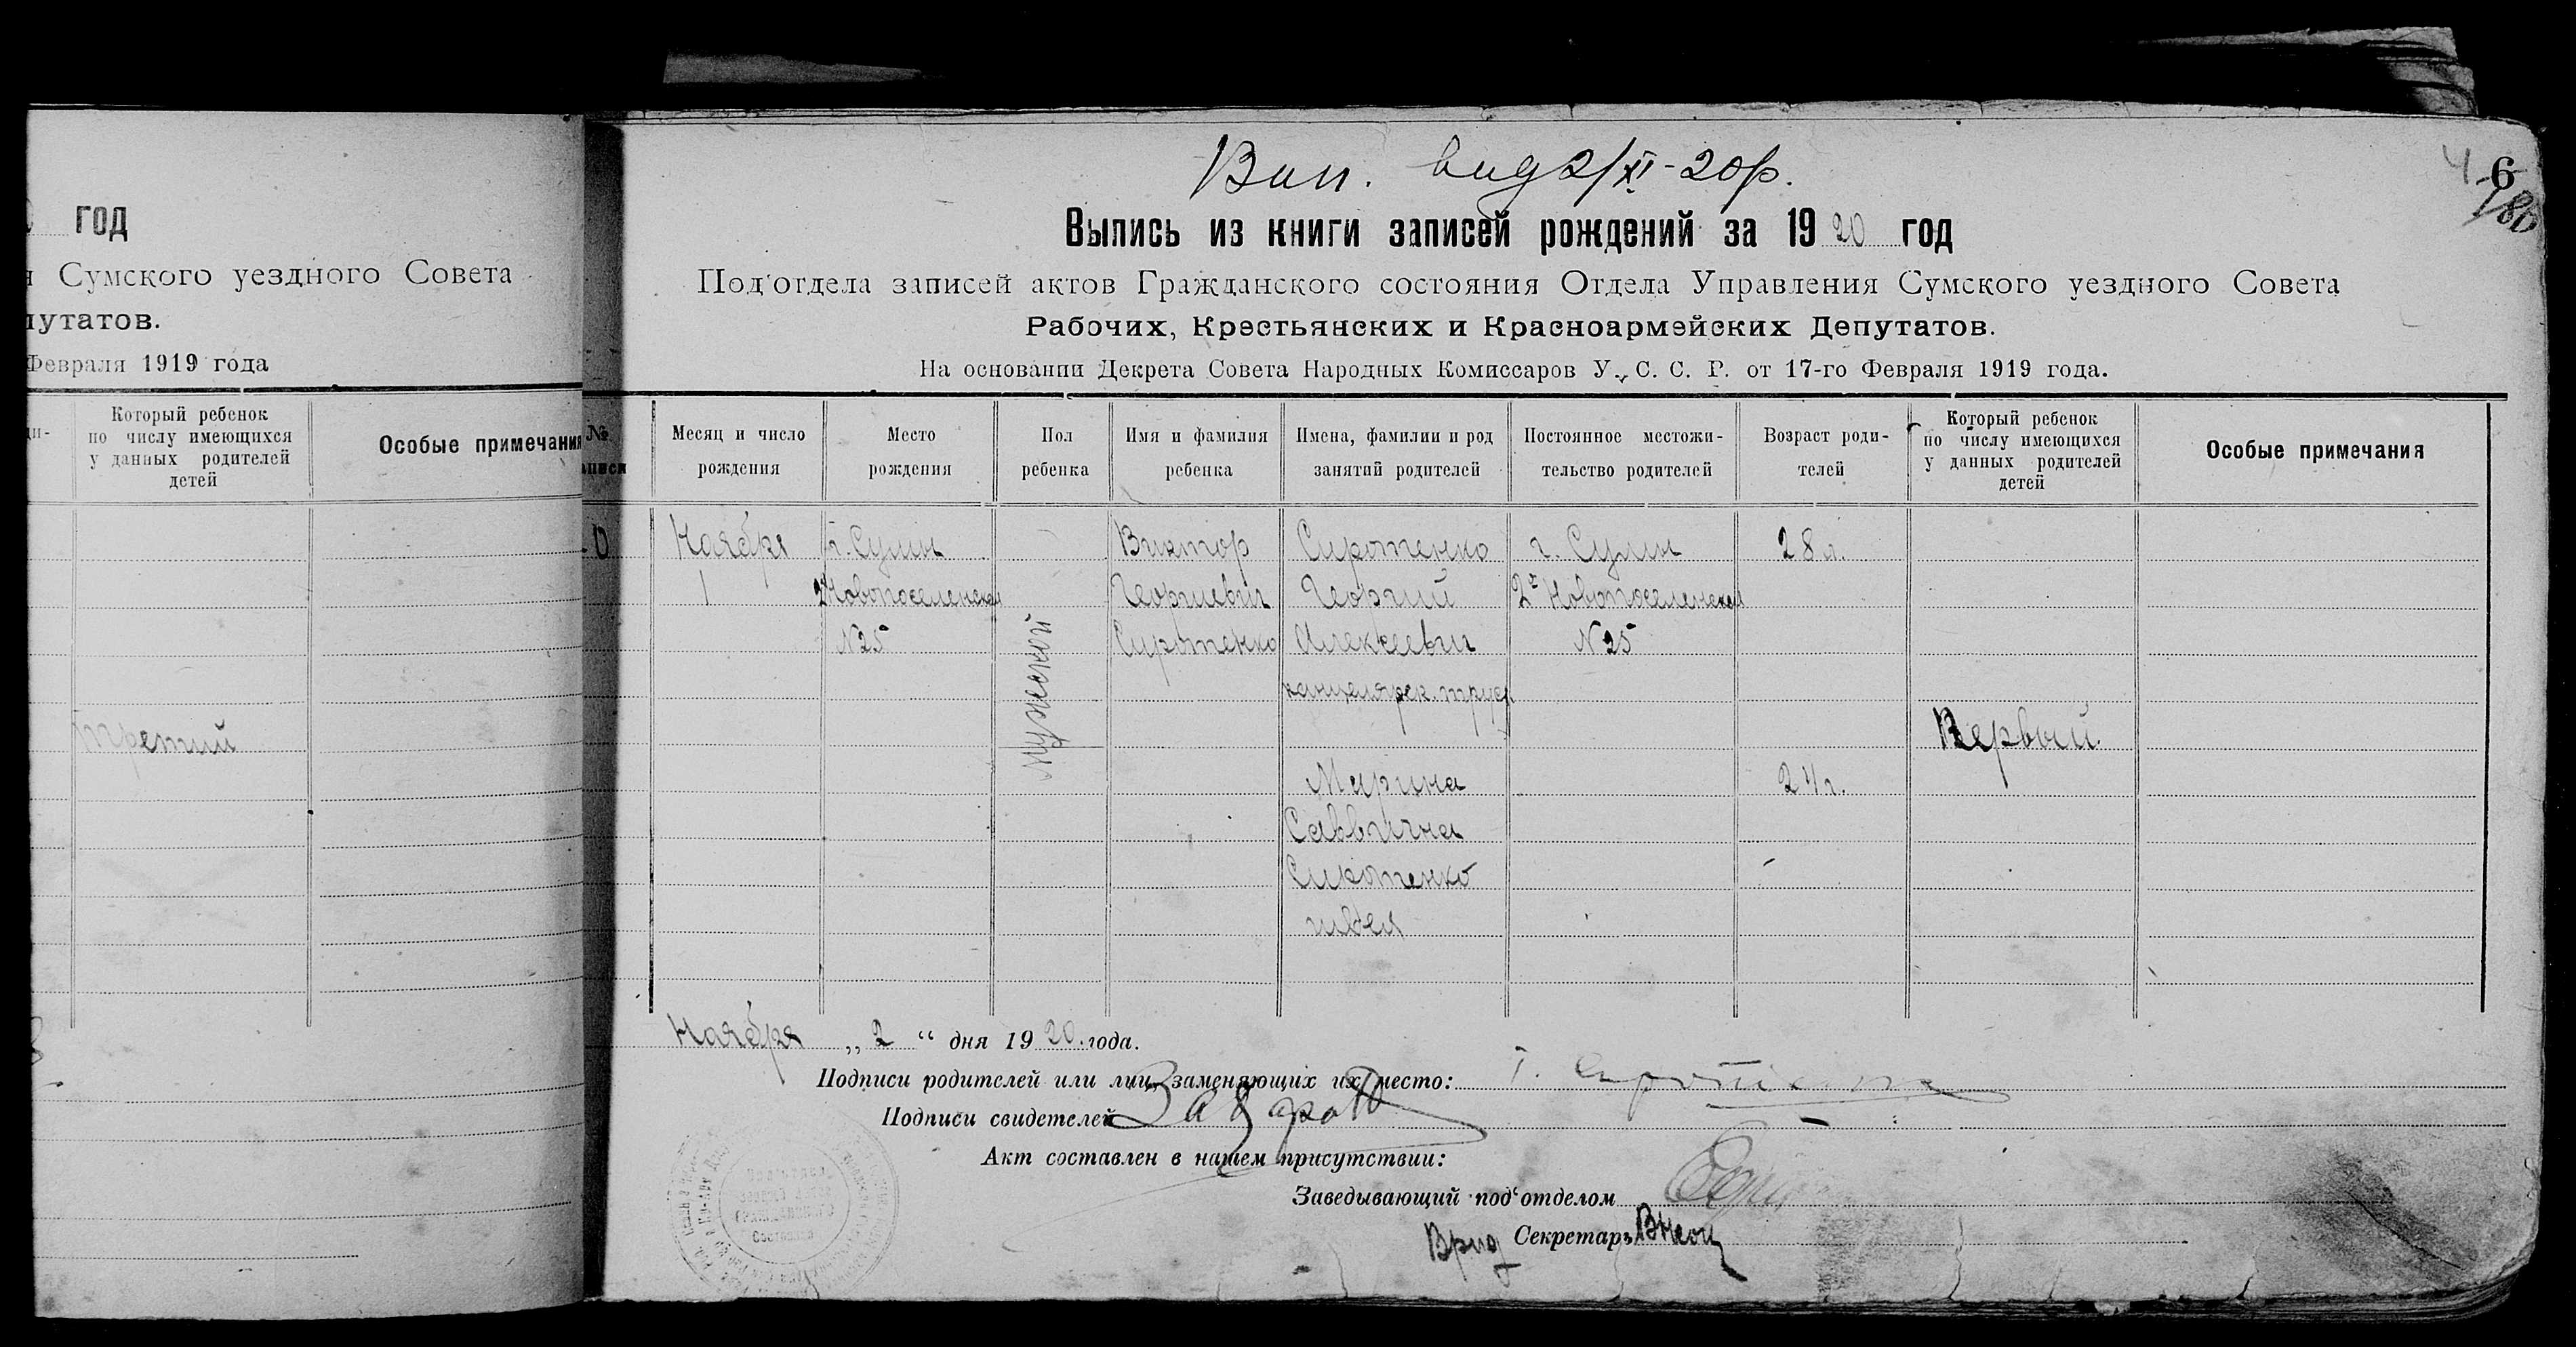 год
Сумского уездного Совета
путатов.
Февраля 1919 года
Который ребенок
по числу имеющихся
у данных родителей
детей
Особые примечания
третий
Вип. вид 2/XI-20р.
4 6
180
Выпись из книги записей рождений за 1920 год
Под'отдела записей актов Гражданского состояния Отдела Управления Сумского уездного Совета
Рабочих, Крестьянских и Красноармейских Депутатов.
На основании Декрета Совета Народных Комиссаров У. С. С. Р. от 17-го Февраля 1919 года.
№
записи
Месяц и число
рождения
Место
рождения
Пол
ребенка
Имя и фамилия
ребенка
Имена, фамилии и род
занятий родителей
Постоянное местожи-
тельство родителей
Возраст роди-
телей
Который ребенок
по числу имеющихся
у данных родителей
детей
Особые примечания
Ноября
1
г. Сумы
2я Новопоселенская
N 25
Мужеской
Виктор
Георгиевич
Сиротенко
Сиротенко
Георгий
Алексеевич
канцелярск. труд
Марина
Саввична
Сиротенко
швея
г. Сумы
2я Новопоселенская
N 25
28 л.
24 г.
Первый.
Ноября „ 2 “ дня 1920 года.
Подписи родителей или лиц, заменяющих их место: Г. Сиротенко
Подписи свидетелей
Акт составлен в нашем присутствии:
Заведывающий под'отделом
Врид Секретарь